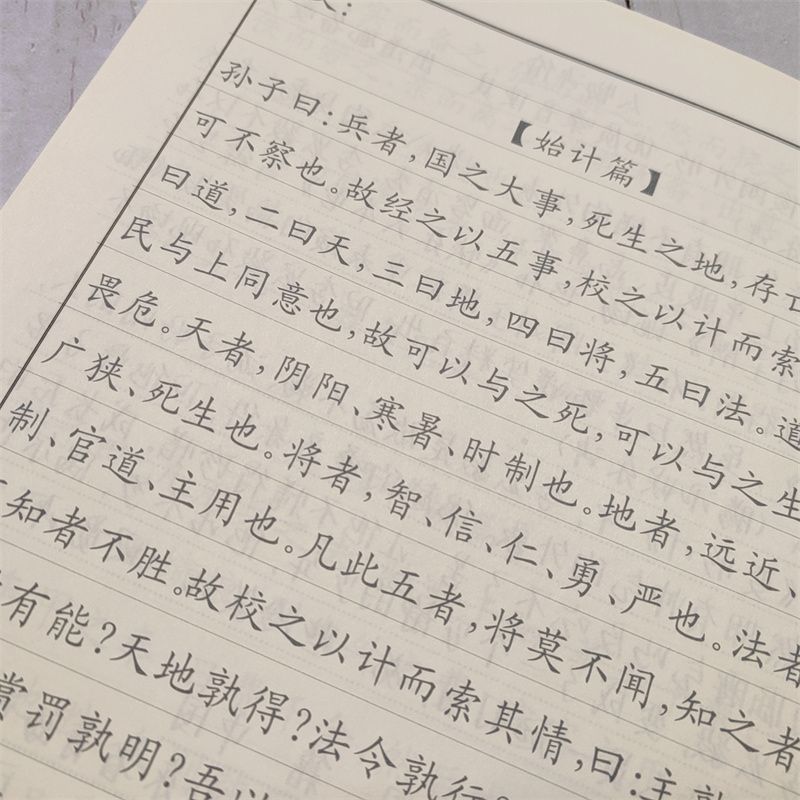 【始计篇】
孙子曰:兵者,国之大事,死生之地,存亡
可不察也。故经之以五事,校之以计而索
曰道,二曰天,三曰地,四曰将,五曰法。道
民与上同意也,故可以与之死,可以与之生
畏危。天者,阴阳、寒暑、时制也。地者,远近、
广狭、死生也。将者,智、信、仁、勇、严也。法者
制、官道、主用也。凡此五者,将莫不闻,知之者
知者不胜。故校之以计而索其情,曰:主孰
有能?天地孰得?法令孰行?
赏罚孰明?吾以